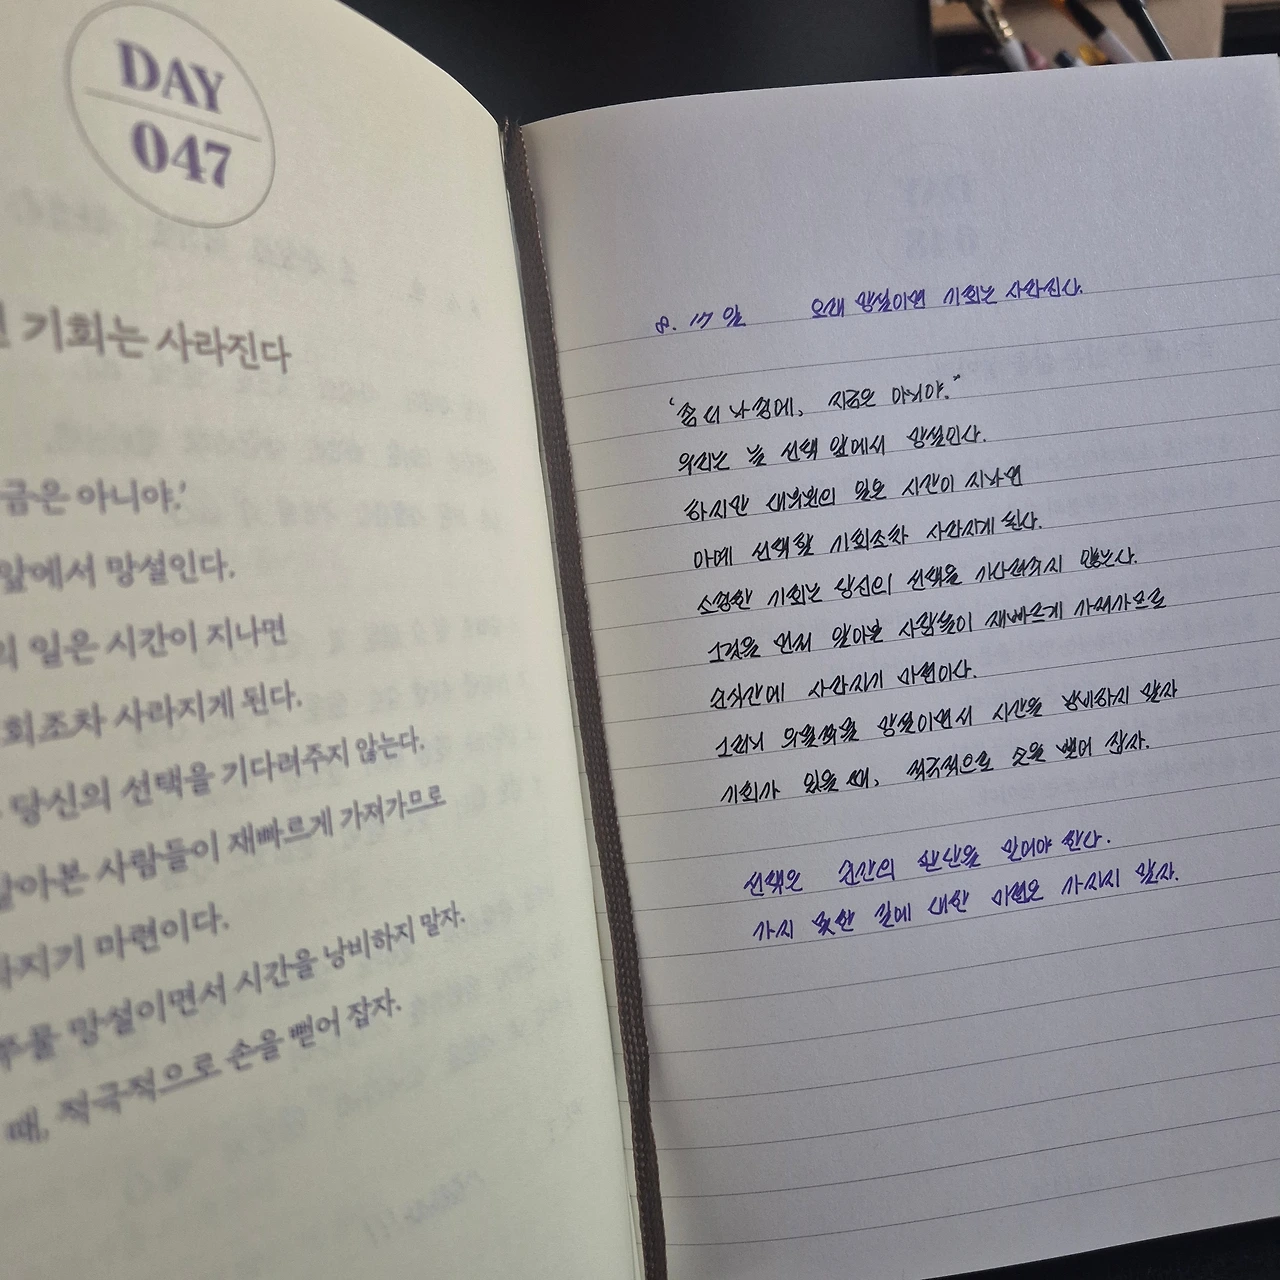 DAY
047
기회는 사라진다
금은 아니야.'
앞에서 망설인다.
의 일은 시간이 지나면
회조차 사라지게 된다.
당신의 선택을 기다려주지 않는다.
알아본 사람들이 재빠르게 가져가므로
라지기 마련이다.
뭇물 망설이면서 시간을 낭비하지 말자.
때, 적극적으로 손을 뻗어 잡자.
8. 17 일 오래 망설이면 기회는 사라진다.
'좀 더 나중에, 지금은 아니야.'
우리는 늘 선택 앞에서 망설인다.
하지만 대부분의 일은 시간이 지나면
아예 선택할 기회조차 사라지게 된다.
소중한 기회는 당신의 선택을 기다려주지 않는다.
그것을 먼저 알아본 사람들이 재빠르게 가져가므로
순식간에 사라지기 마련이다.
그러니 망설이면서 시간을 낭비하지 말자
기회가 있을 때, 적극적으로 손을 뻗어 잡자.
선택은 순간의 확신을 믿어야 한다.
가지 못한 길에 대한 미련은 가지지 말자.